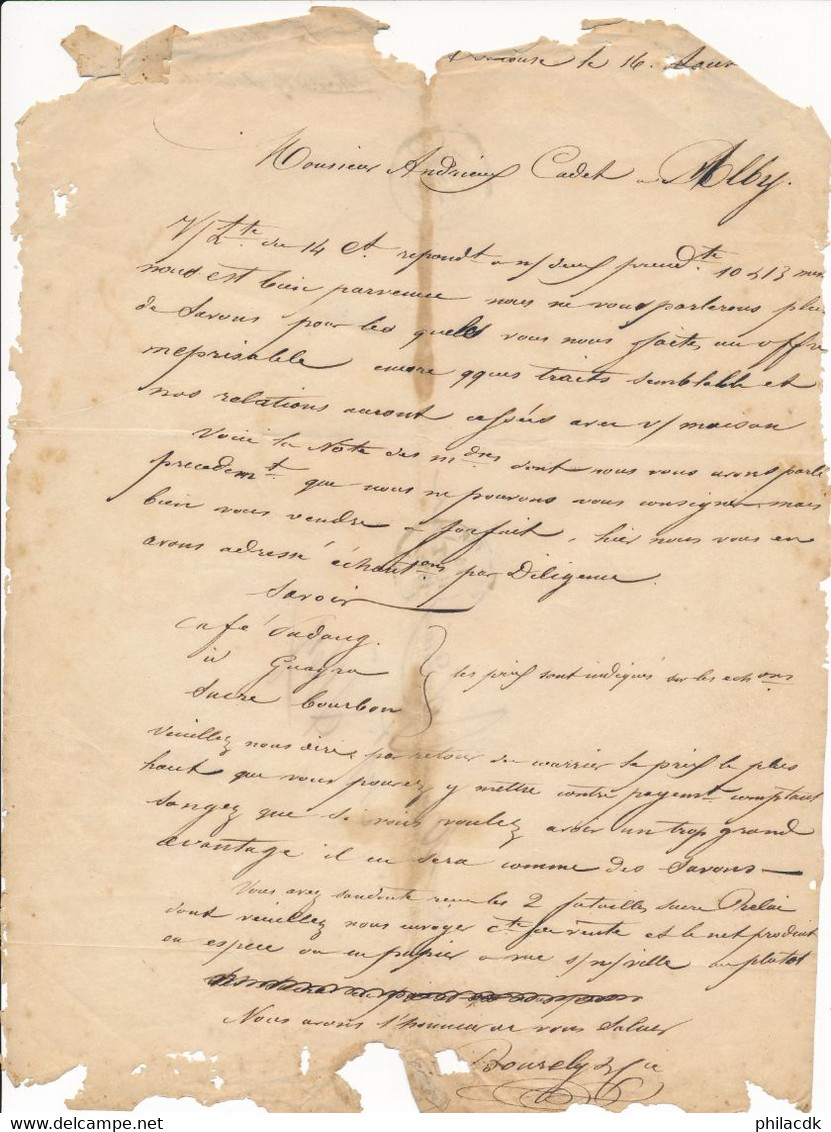 le 16.
Monsieur Andrieux Cadet à Alby.
V/ L.tte du 14 Ct. repond.t a n/ deux preced.te 10 & 13
nous est bien parvenue nous ne vous parlerons plus
de Savons pour les quels vous nous faites un offre
meprisable encore qques traits semblable et
nos relations auront cessées avec v/ maison
Voici la Note des m.dses dont nous vous avons parlé
precedem.t que nous ne pouvons vous consigner mais
bien vous vendre a forfait, hier nous vous en
avons adressé échant.ons par Diligence.
Savoir
Café Padang.
id Guayra
Sucre bourbon
les prix sont indiqués sur les ech.ons
Veuillez nous dire par retour du courrier le prix le plus
haut que vous pouvez y mettre contre payemt. comptant
songez que si vous voulez avoir un trop grand
avantage il en sera comme des Savons —
Vous avez sandoute reçu les 2 futailles sucre
dont veuillez nous envoyer c.te de vente et le net produit
en espece ou en papier a vue s/ n/ ville au plutot
Nous avons l'honneur de vous saluer
& Cie
philacdk